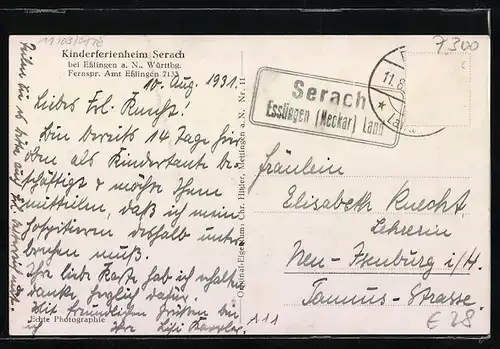 11103/6176
7300
Kinderferienheim Serach
bei Eßlingen a. N., Württbg.
Fernspr. Amt Eßlingen 7133
10. Aug. 1931.
Liebes Frl. Knecht.
Bin bereits 14 Tage hier
oben als Kindertante be-
schäftigt & möchte Ihnen
mitteilen, daß ich mein
Hospitieren deshalb unter-
brechen muß.
Ihre liebe Karte hab ich erhalten
danke herzlich dafür.
Mit freundlichen Grüßen bin
ich Ihre
Echte Photographie
Original-Eigentum: Chr. Hitler, Mettingen a. N. Nr. 11
Serach
Esslingen (Neckar) Land
11.8.
Fräulein
Elisabeth Knecht,
Lehrerin
Neu-Isenburg i/H.
Taunus-Strasse.
111
€28